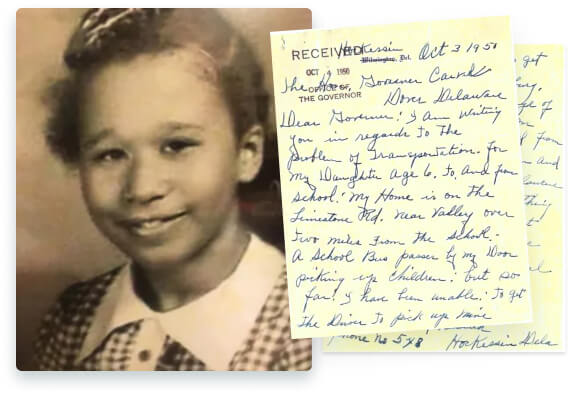 RECEIVED
Hockessin Oct 3 1950
Wilmington, Del.
OCT 1950
OFFICE OF
THE GOVERNOR
The Governor Carvel
Dover Delaware
Dear Governor: I Am Writing
You in regards to The
problem of Transportation. For
My Daughter Age 6. To, And from
School. My Home is on the
Limestone Rd. near Valley over
Two miles From the School.
A School Bus passes by my Door
picking up children: but so
far! I have been unable: To get
the Driver To pick up mine
phone No 5x8 Hockessin Dela
to get
of
from
and
thing